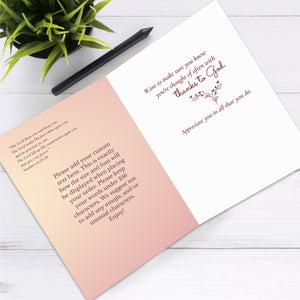 "The Lord bless you, and keep you;
The Lord make His face shine upon you,
And be gracious to you;
The Lord lift up His countenance upon you,
And give you peace."
Numbers 6:24-26
Please add your custom
text here. This is exactly
how the size and font will
be displayed when placing
your order. Please keep
your words under 336
characters. We suggest not
to add any emojis, and/or
unusual characters.
Enjoy!
Want to make sure you know
you're thought of often with
thanks to God
Appreciate you in all that you do.